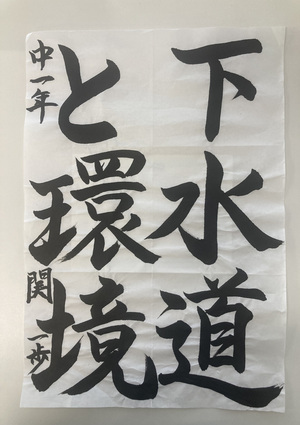 下水道
と環境
中一年 関 一歩